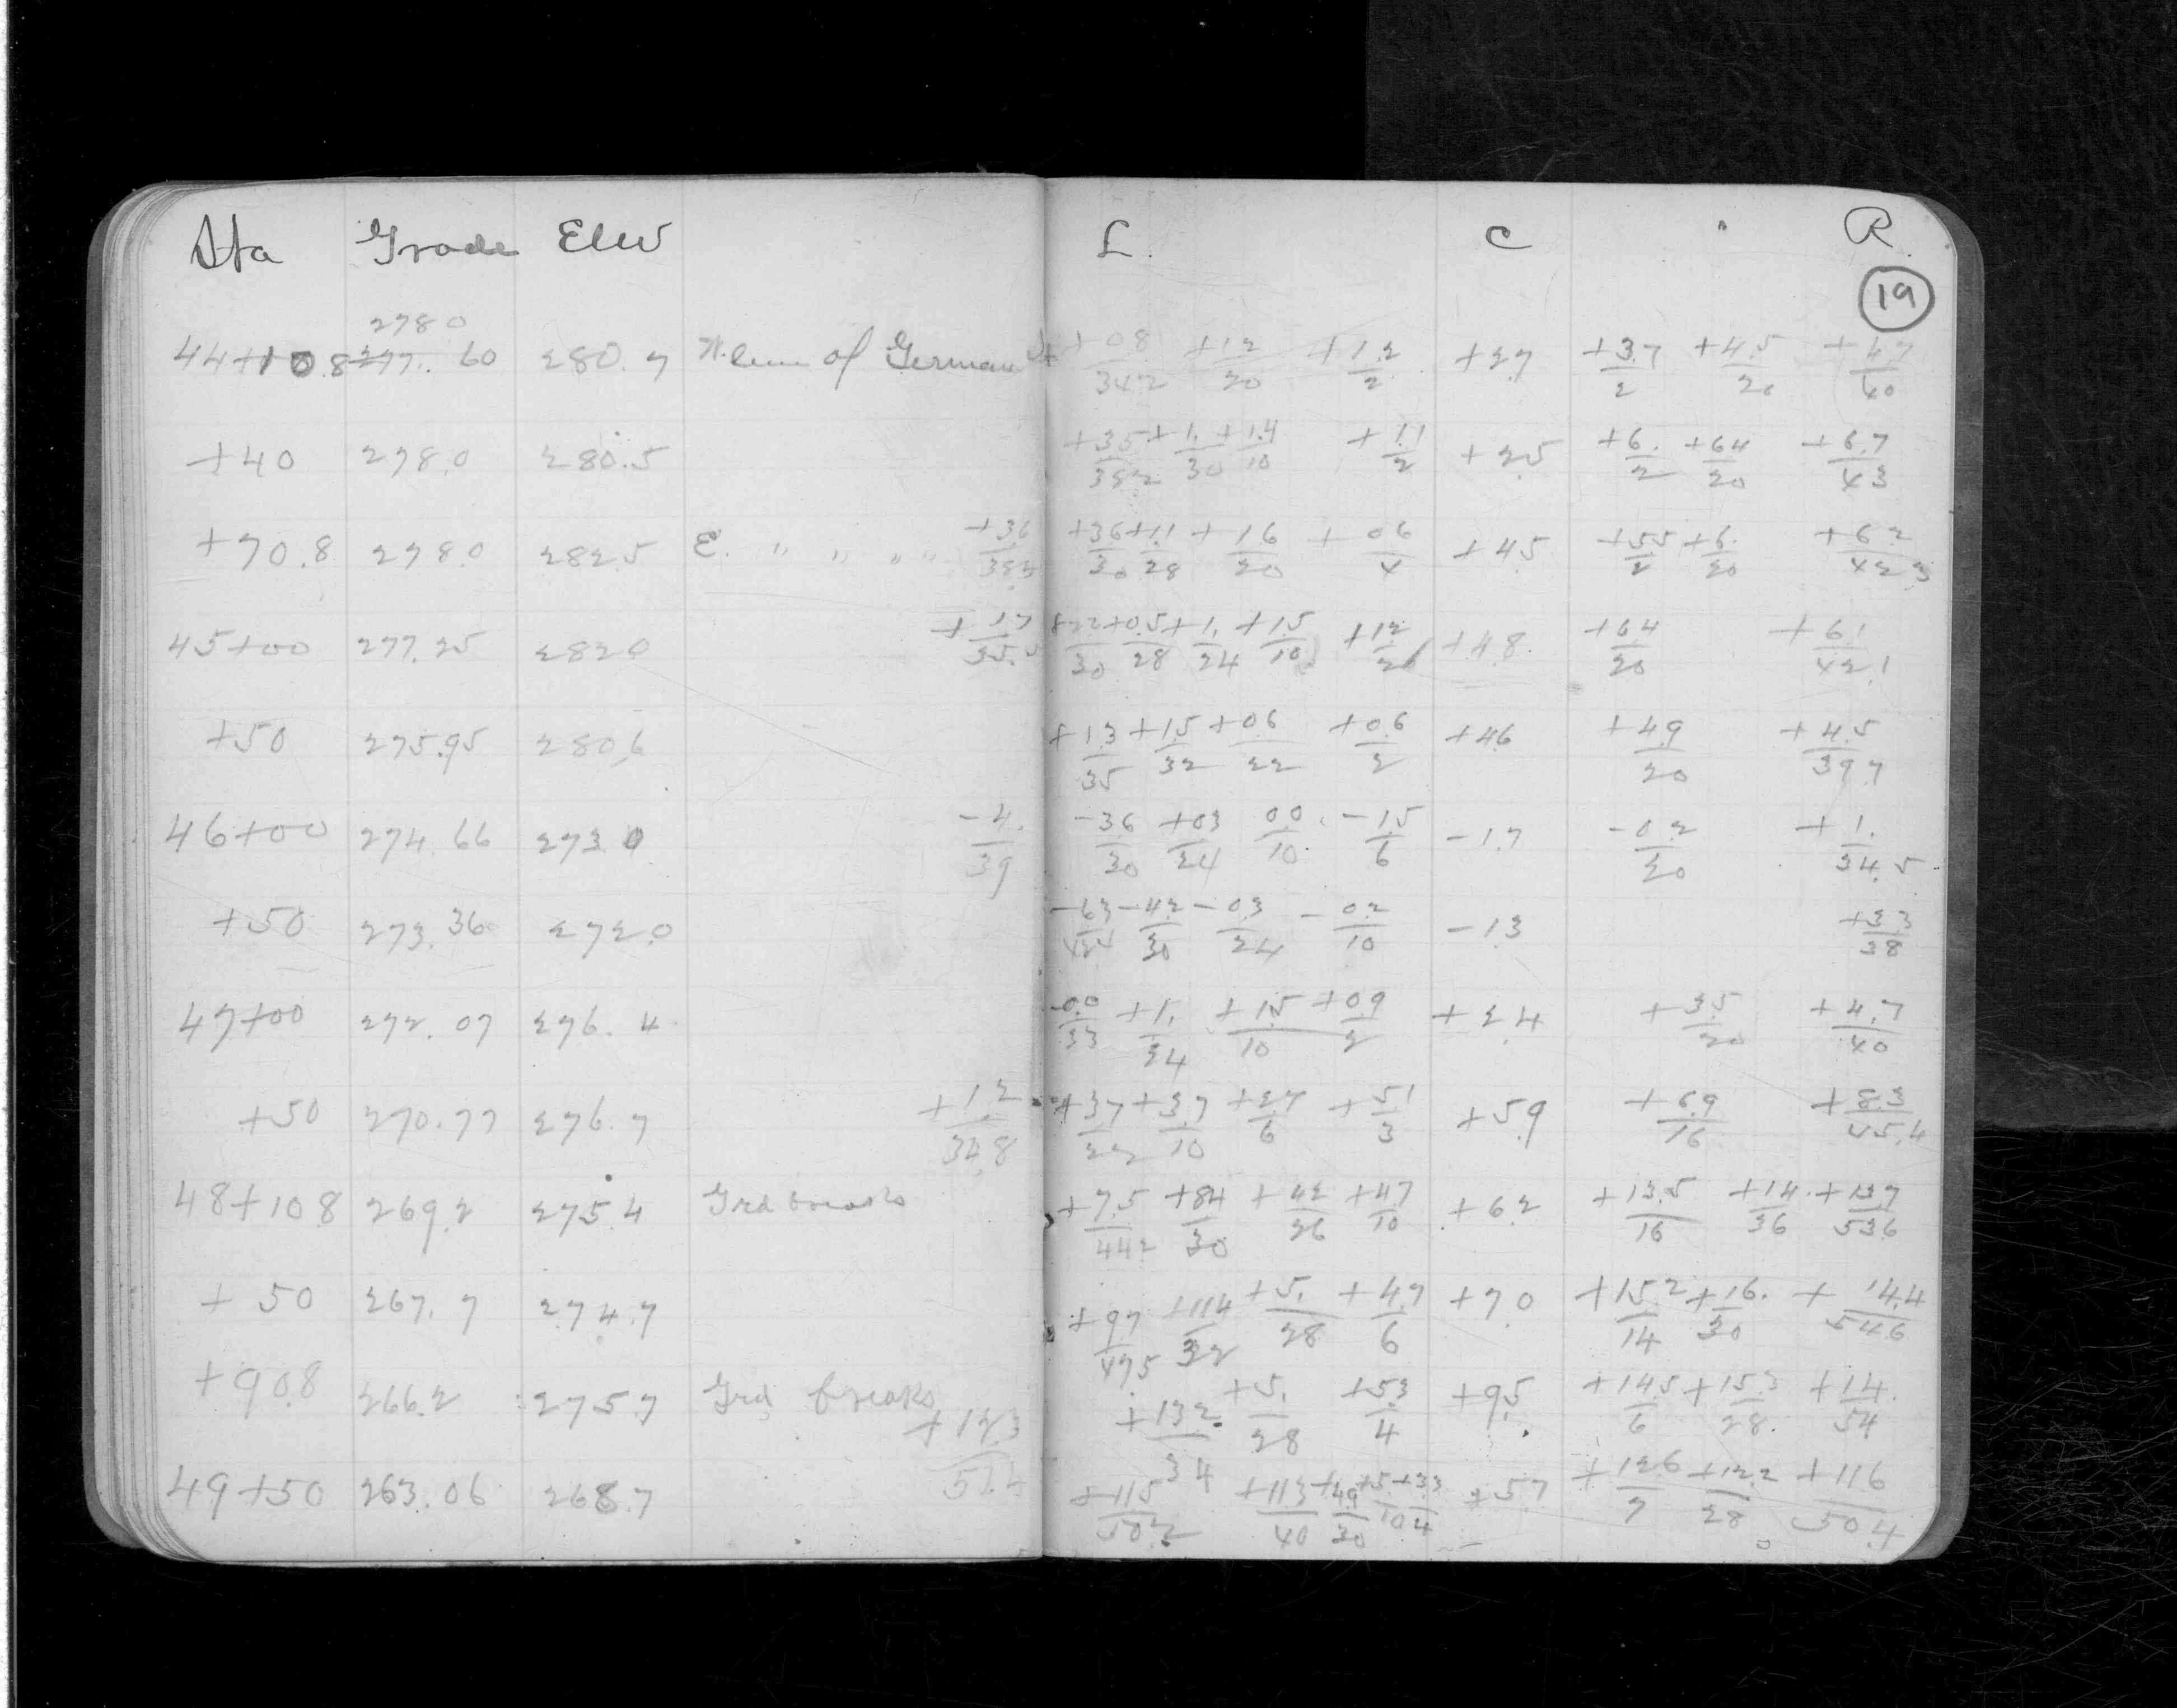 Sta Grade Elev L. C R.
19
2780
44+10.8 277.60 280.7 W. line of German St +08/342 +12/20 +1.2/2 +2.7 +3.7/2 +4.5/20 +4.7/40
+40 278.0 280.5 +35/352 +1./30 +1.4/10 +1.1/2 +2.5 +6./2 +64/20 +6.7/43
+70.8 2780 282.5 E. " " " " +36/353 +36/30 +1.1/28 +16/20 +06/4 +4.5 +55/2 +6./20 +62/423
45+00 277.25 2820 +17/35.5 +22/30 +0.5/28 +1./24 +1.5/10 +12/26 +4.8 +64/20 +61/42.1
+50 275.95 280.6 +1.3/35 +1.5/32 +06/22 +0.6/2 +46 +49/20 +4.5/397
46+00 274.66 273.0 -4./39 -36/30 +03/24 00/10 -1.5/6 -1.7 -0.2/20 +1./34.5
+50 273.36 272.0 -63/424 -42/30 -03/24 -02/10 -1.3 +33/38
47+00 272.07 276.4 -0.0/33 +1./24 +1.5/10 +09/2 +2.4 +3.5/20 +4.7/40
+50 270.77 276.7 +1.2/34.8 +37/22 +3.7/10 +27/6 +51/3 +5.9 +69/16 +8.3/45.4
48+108 269.2 275.4 Grd breaks +7.5/442 +84/30 +42/26 +47/10 +6.2 +13.5/16 +14./36 +137/536
+50 267.7 274.7 +97/495 +114/32 +5./28 +4.7/6 +70 +152/14 +16./30 +14.4/546
+90.8 266.2 275.7 Grd breaks +132/34 +5./28 +53/4 +9.5 +14.5/6 +15.3/28. +14./54
49+50 263.06 268.7 +12.3/51.4 +115/502 +113/40 +49/30 +5./10 +33/4 +5.7 +126/7 +122/28 +116/50.4